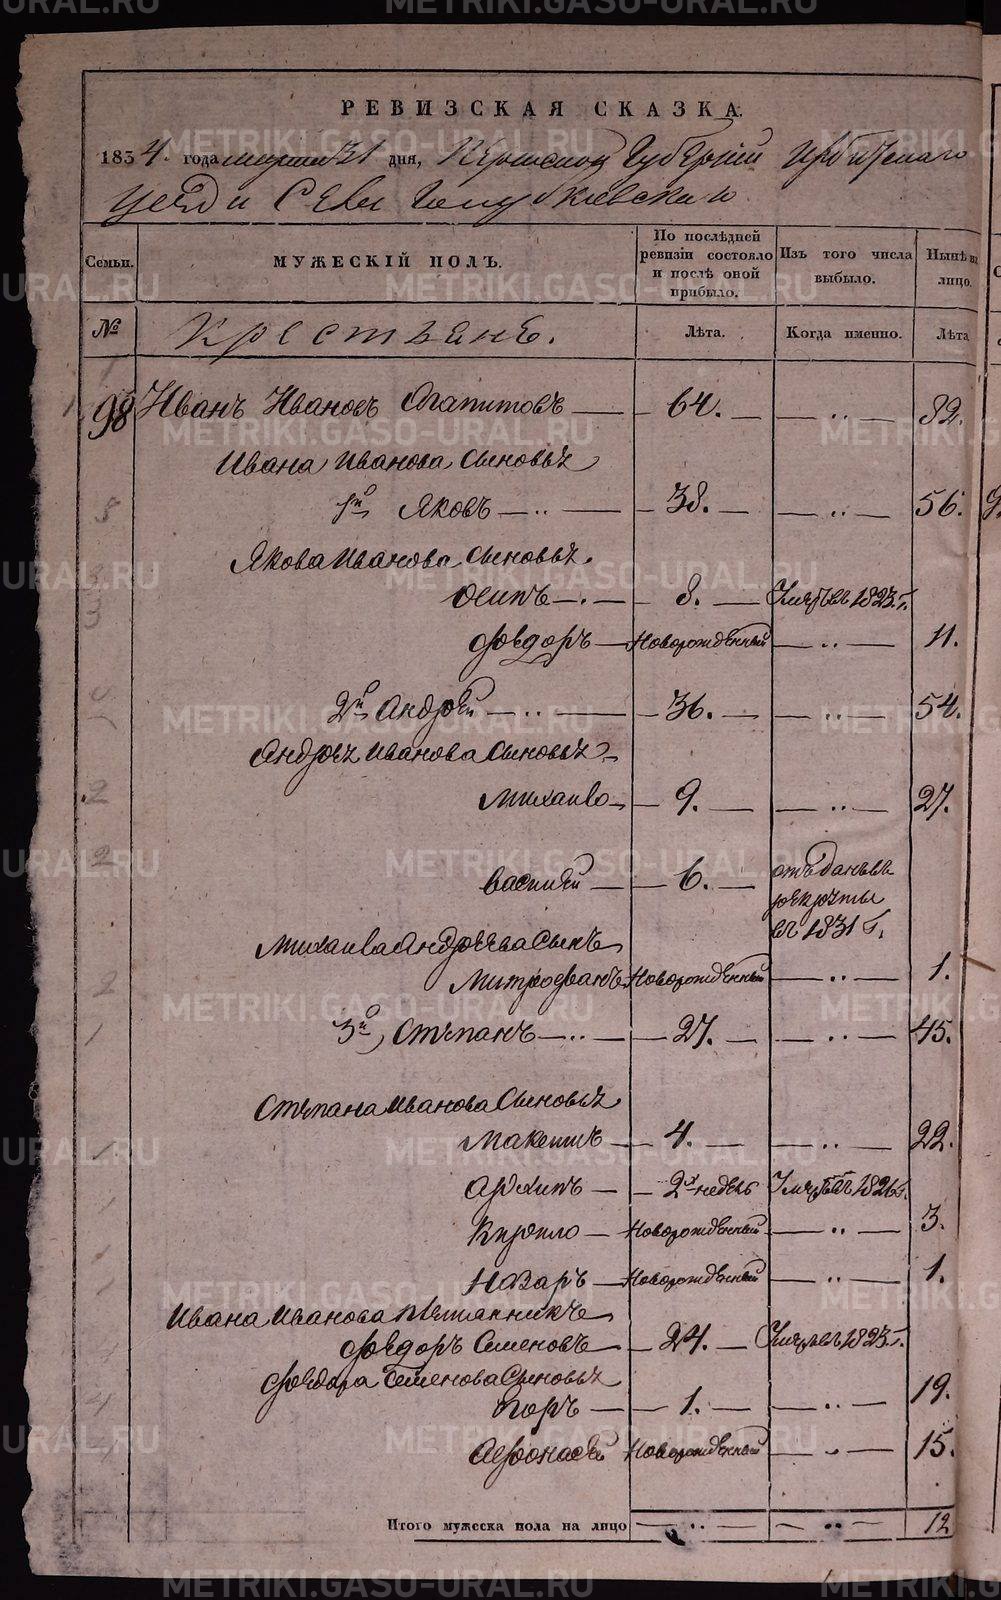 РЕВИЗСКАЯ СКАЗКА.
1834. года марта 31 дня, Пермской Губернiи Ирбитскаго
уезда Села Голубковскаго
Семьи. МУЖЕСКІЙ ПОЛЪ. По послѣдней ревизіи состояло и послѣ оной прибыло. Изъ того числа выбыло. Нынѣ на лицо.
№ Крестьяне. Лѣта. Когда именно. Лѣта
98 Иванъ Ивановъ Агапитовъ — 64. — — „ — 82.
Ивана Иванова Сыновья
1й Яковъ — „ — — 38. — — „ — 56.
Якова Иванова Сыновья
Осипъ — . — — 8. — Умеръ въ 1823. г.
Фведоръ — Новорожденный — „ — 11.
2й Андрей — „ — — 36. — — „ — 54.
Андрея Иванова Сыновья
Михаило — — 9. — — „ — 27.
василей — — 6. — отъданъ въ
рекруты
въ 1831 г.
Михаила Андреева Сынъ
Митрофанъ Новорожденный — „ — 1.
3й Степанъ — „ — — 27. — — „ — 45.
Степана Иванова Сыновья
Макситъ — — 4. — — „ — 22.
Архипъ — — 2х недель Умеръ въ 1826 г.
Кирило — Новорожденный — „ — 3.
Назаръ — Новорожденный — „ — 1.
Ивана Иванова племянникъ
Фведоръ Семеновъ — — 24. — Умеръ въ 1823. г.
Фведора Семенова Сыновья
Поръ — — 1. — — „ — 19.
Афонасей Новорожденный — „ — 15.
Итого мужеска пола на лицо — „ — — „ — 12
METRIKI.GASO-URAL.RU